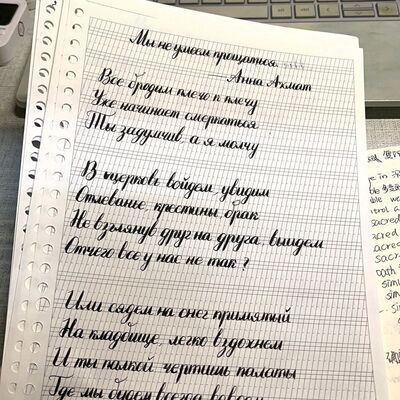 Мы не умеем прощаться.
—Анна Ахмат
Все бродим плечо к плечу
Уже начинает смеркаться
Ты задумчив, а я молчу
В церковь войдем, увидим
Отпевание, крестины, брак
Не взглянув друг на друга, выйдем
Отчего все у нас не так?
Или сядем на снег примятый
На кладбище, легко вздохнем
И ты палкой чертишь палаты
Где мы будем всегда вдвоем
ge in
ble
able we
ntrol a
sacred
sacred
sacre
sacr
oath
simi
sim